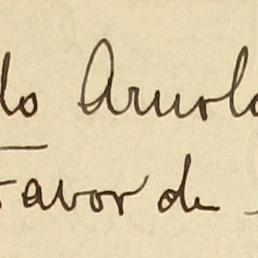 do Arnold
Favor de